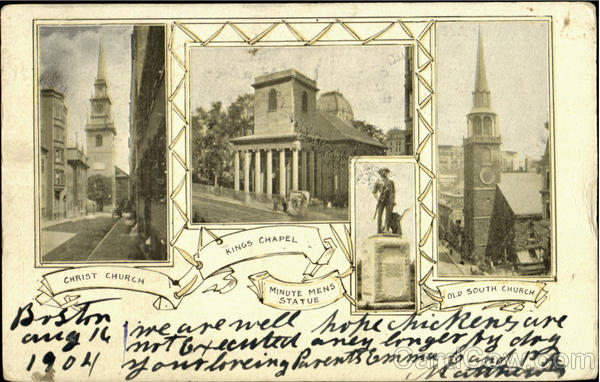 KINGS CHAPEL
CHRIST CHURCH
MINUTE MENS
STATUE
OLD SOUTH CHURCH
Boston
aug 16
1904
we are well hope chickens are
not Executed aney longer by dog
your loveing Parents Emma and
CardCow.com